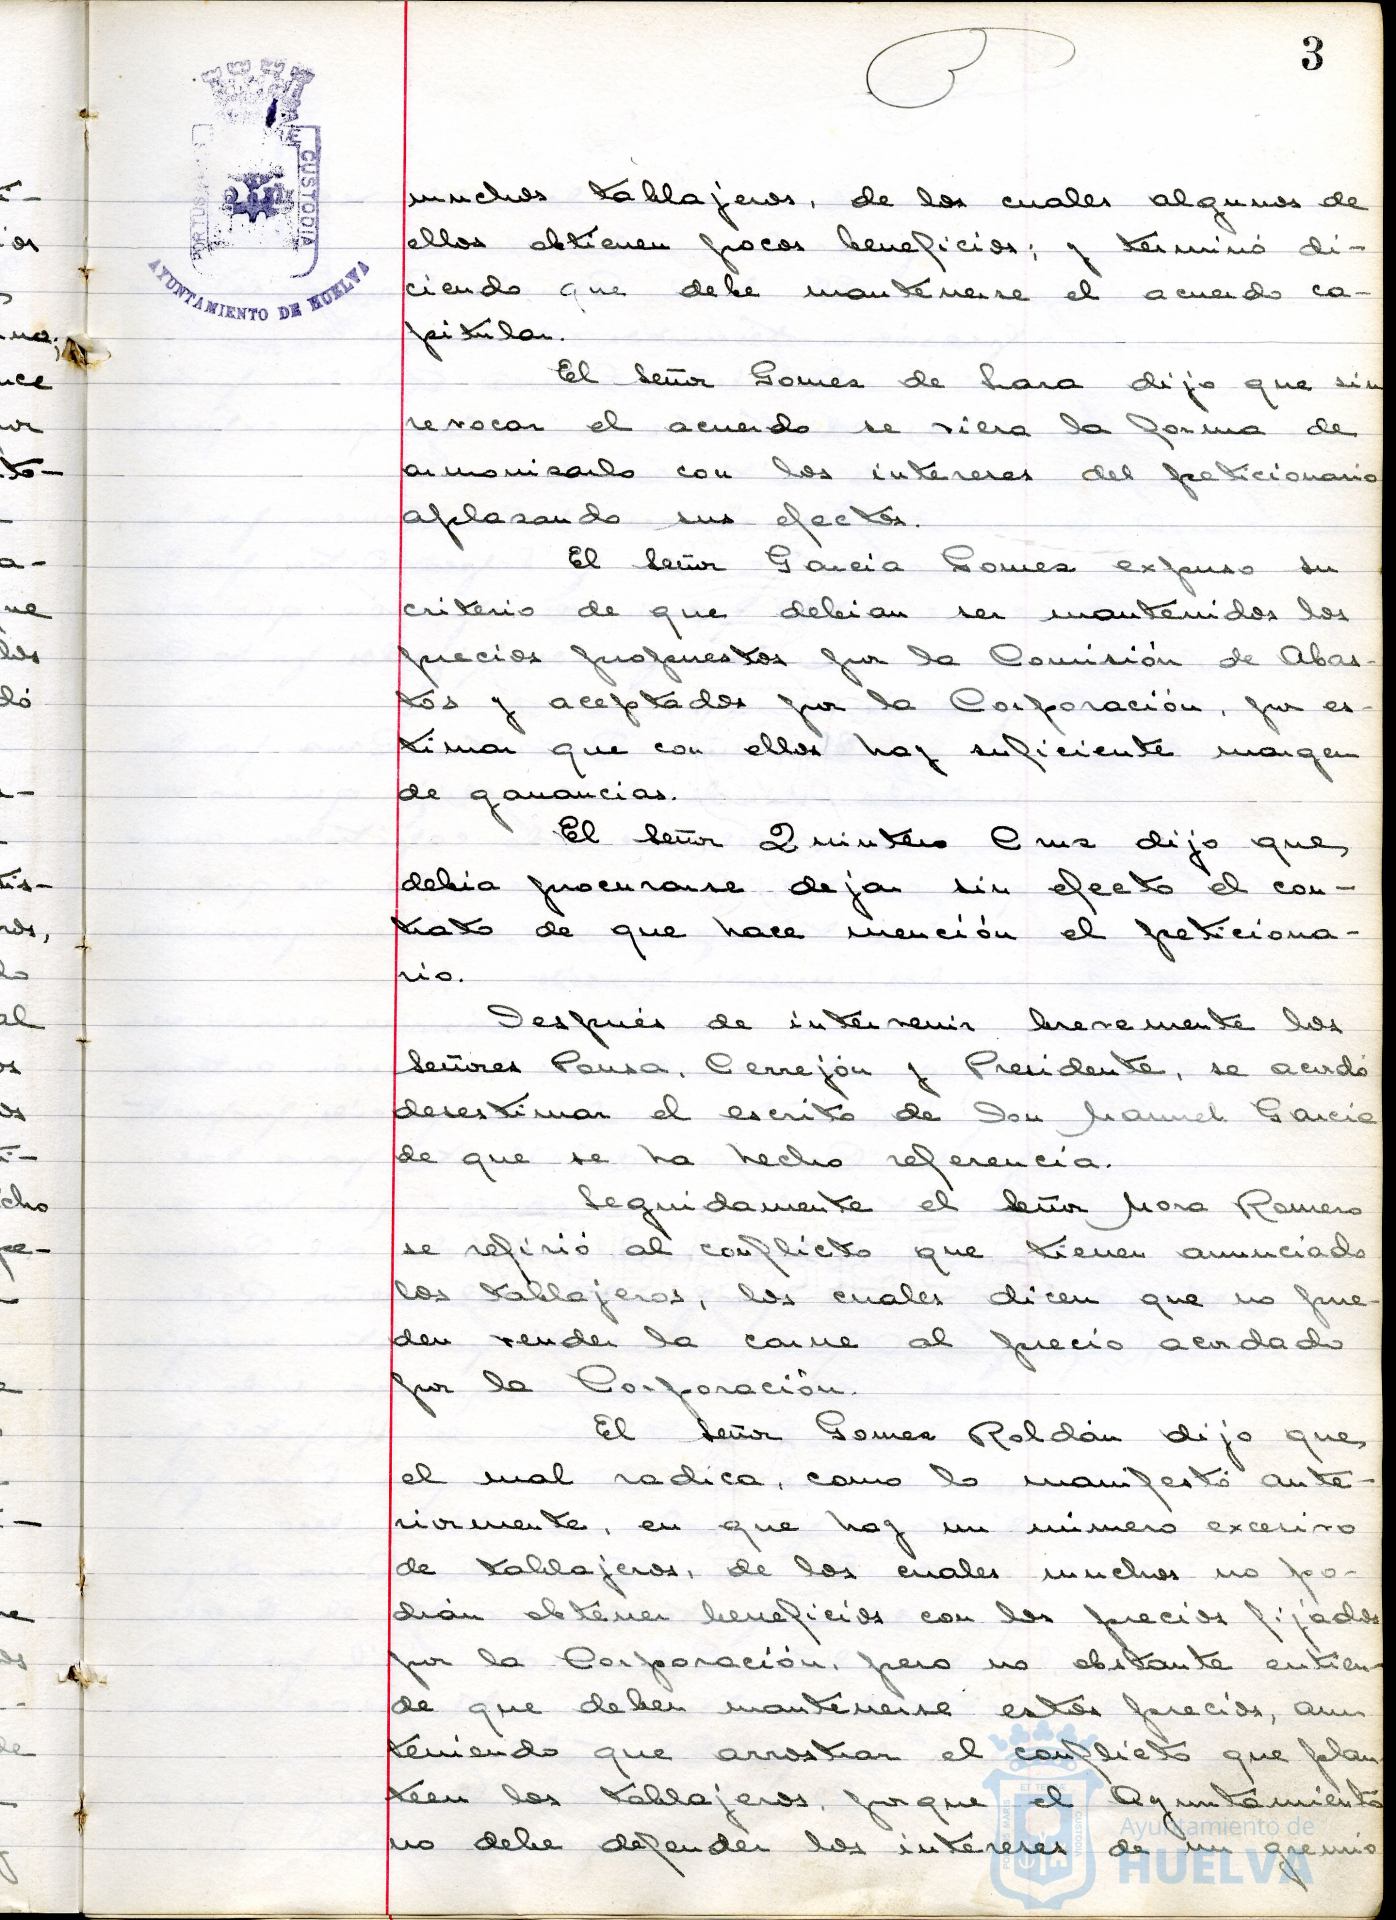 3
PORTUS
CUSTODIA
AYUNTAMIENTO DE HUELVA
muchos tablajeros, de los cuales algunos de
ellos obtienen pocos beneficios; y terminó di-
ciendo que debe mantenerse el acuerdo ca-
pitular.
El Señor Gomez de Lara dijo que sin
revocar el acuerdo se viera la forma de
armonizarlo con los intereses del peticionario
aplazando sus efectos.
El Señor Garcia Gomez expuso su
criterio de que debian ser mantenidos los
precios propuestos por la Comisión de Abas-
tos y aceptados por la Corporación, por es-
timar que con ellos hay suficiente margen
de ganancias.
El Señor Quintero Cruz dijo que
debia procurarse dejar sin efecto el con-
trato de que hace mención el peticiona-
rio.
Después de intervenir brevemente los
Señores Ponsa, Cerrejón y Presidente, se acordó
desestimar el escrito de Don Manuel Garcia
de que se ha hecho referencia.
Seguidamente el Señor Mora Romero
se refirió al conflicto que tienen anunciado
los tablajeros, los cuales dicen que no pue-
den vender la carne al precio acordado
por la Corporación.
El Señor Gomez Roldán dijo que
el mal radica, como lo manifestó ante-
riormente, en que hay un número excesivo
de tablajeros, de los cuales muchos no po-
drán obtener beneficios con los precios fijados
por la Corporación, pero no obstante entien-
de que deben mantenerse estos precios, aun
teniendo que arrostrar el conflicto que plan-
teen los tablajeros, porque el Ayuntamiento
no debe defender los intereses de un gremio
Ayuntamiento de
HUELVA